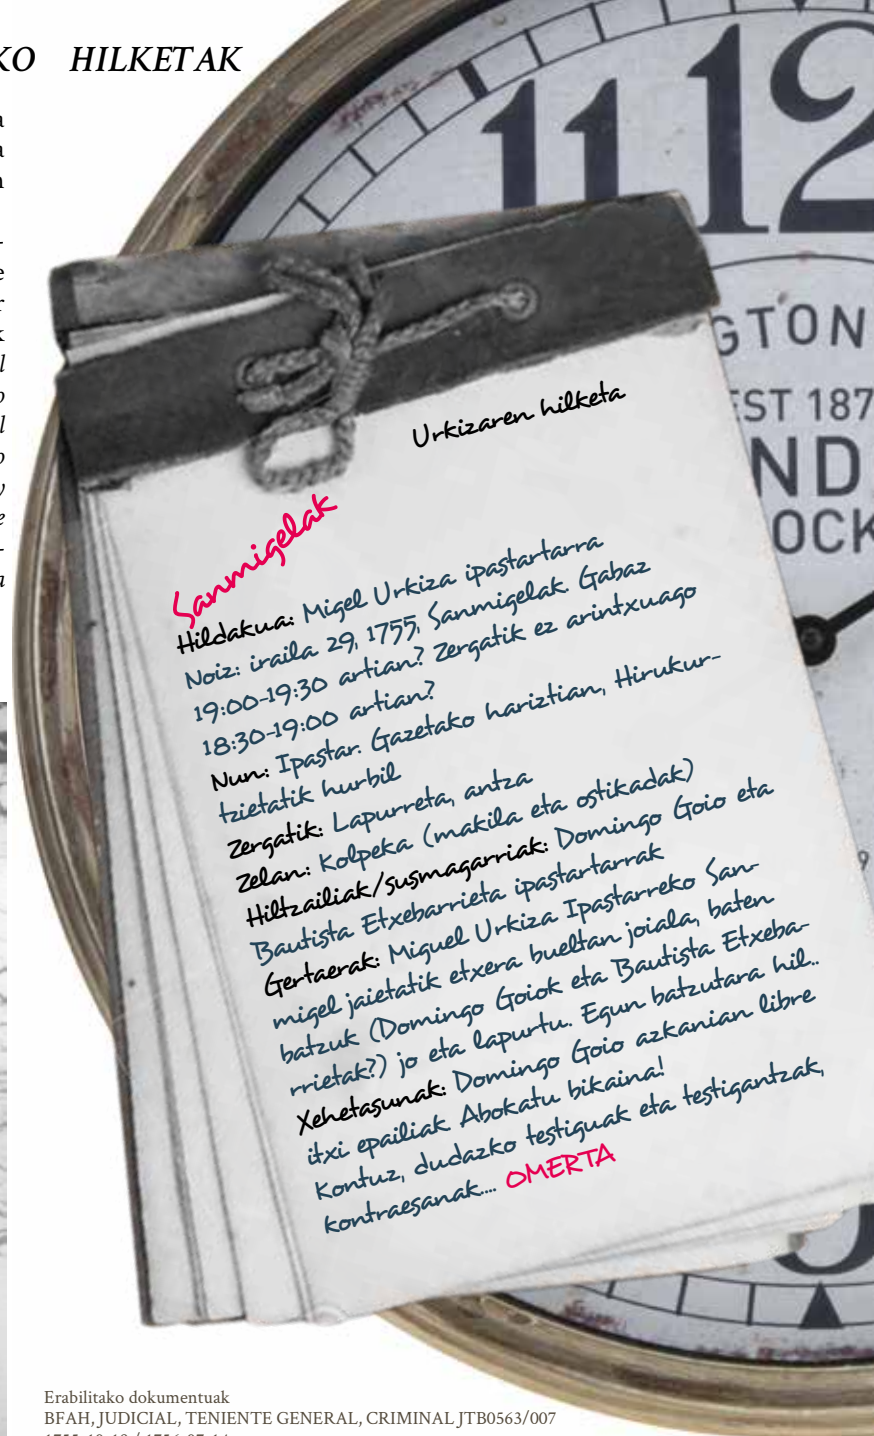 KO HILKETAK
a
a
n
-
e
r
k
l
o
l
o
y
e
-
a
11 12
GTON
EST 187
ND
OCK
9
Urkizaren hilketa
Sanmigelak
Hildakua: Migel Urkiza ipastartarra
Noiz: iraila 29, 1755, Sanmigelak. Gabaz
19:00-19:30 artian? Zergatik ez arintxuago
18:30-19:00 artian?
Nun: Ipastar. Gazetako hariztian, Hirukur-
tzietatik hurbil
Zergatik: Lapurreta, antza
Zelan: Kolpeka (makila eta ostikadak)
Hiltzailiak/susmagarriak: Domingo Goio eta
Bautista Etxebarrieta ipastartarrak
Gertaerak: Miguel Urkiza Ipastarreko San-
migel jaietatik etxera bueltan joiala, baten
batzuk (Domingo Goiok eta Bautista Etxeba-
rrietak?) jo eta lapurtu. Egun batzutara hil..
Xehetasunak: Domingo Goio azkanian libre
itxi epailiak. Abokatu bikaina!
Kontuz, dudazko testiguak eta testigantzak,
kontraesanak.... OMERTA
Erabilitako dokumentuak
BFAH, JUDICIAL, TENIENTE GENERAL, CRIMINAL JTB0563/007